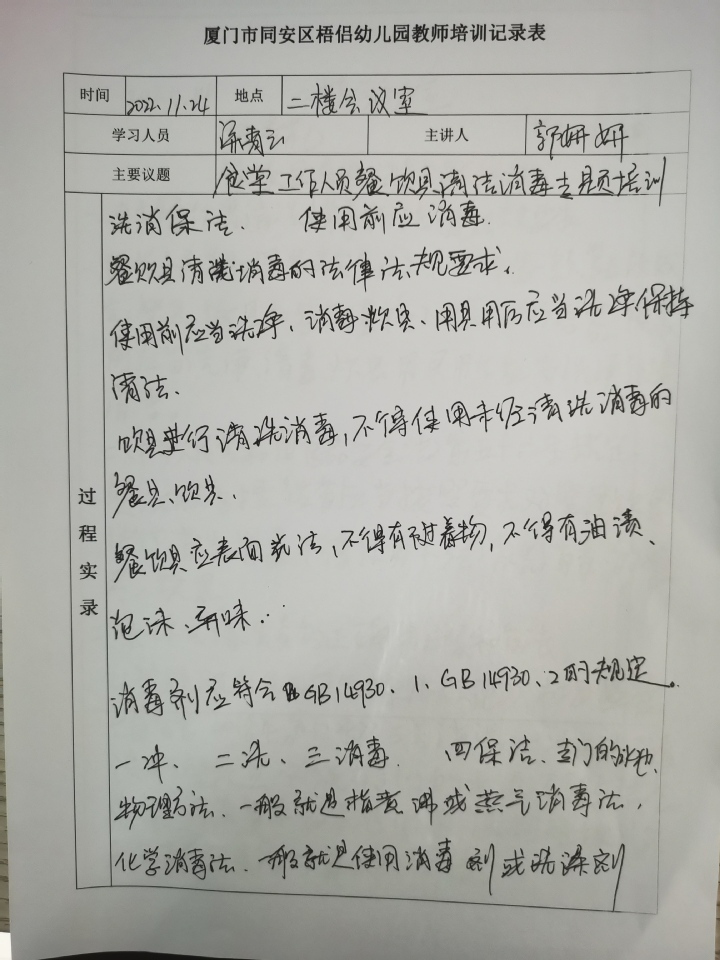 厦门市同安区梧侣幼儿园教师培训记录表
时间 2022.11.24 地点 二楼会议室
学习人员 主讲人 郭妍妍
主要议题 食堂工作人员餐饮具清洁消毒专题培训
过程实录
洗消保洁、 使用前应消毒.
餐饮具清洗消毒的法律法规要求。
使用前应当洗净、消毒炊具、用具用后应当洗净保持
清洁、
饮具进行清洗消毒,不得使用未经清洗消毒的
餐具、饮具、
餐饮具应表面光洁,不得有附着物,不得有油渍、
泡沫、异味..
消毒剂应符合GB14930、1、GB14930、2的规定。
一冲、 二洗、三消毒. 四保洁、专门的水池、
物理方法、一般就是指煮沸或蒸气消毒法,
化学消毒法、一般就是使用消毒剂或洗涤剂